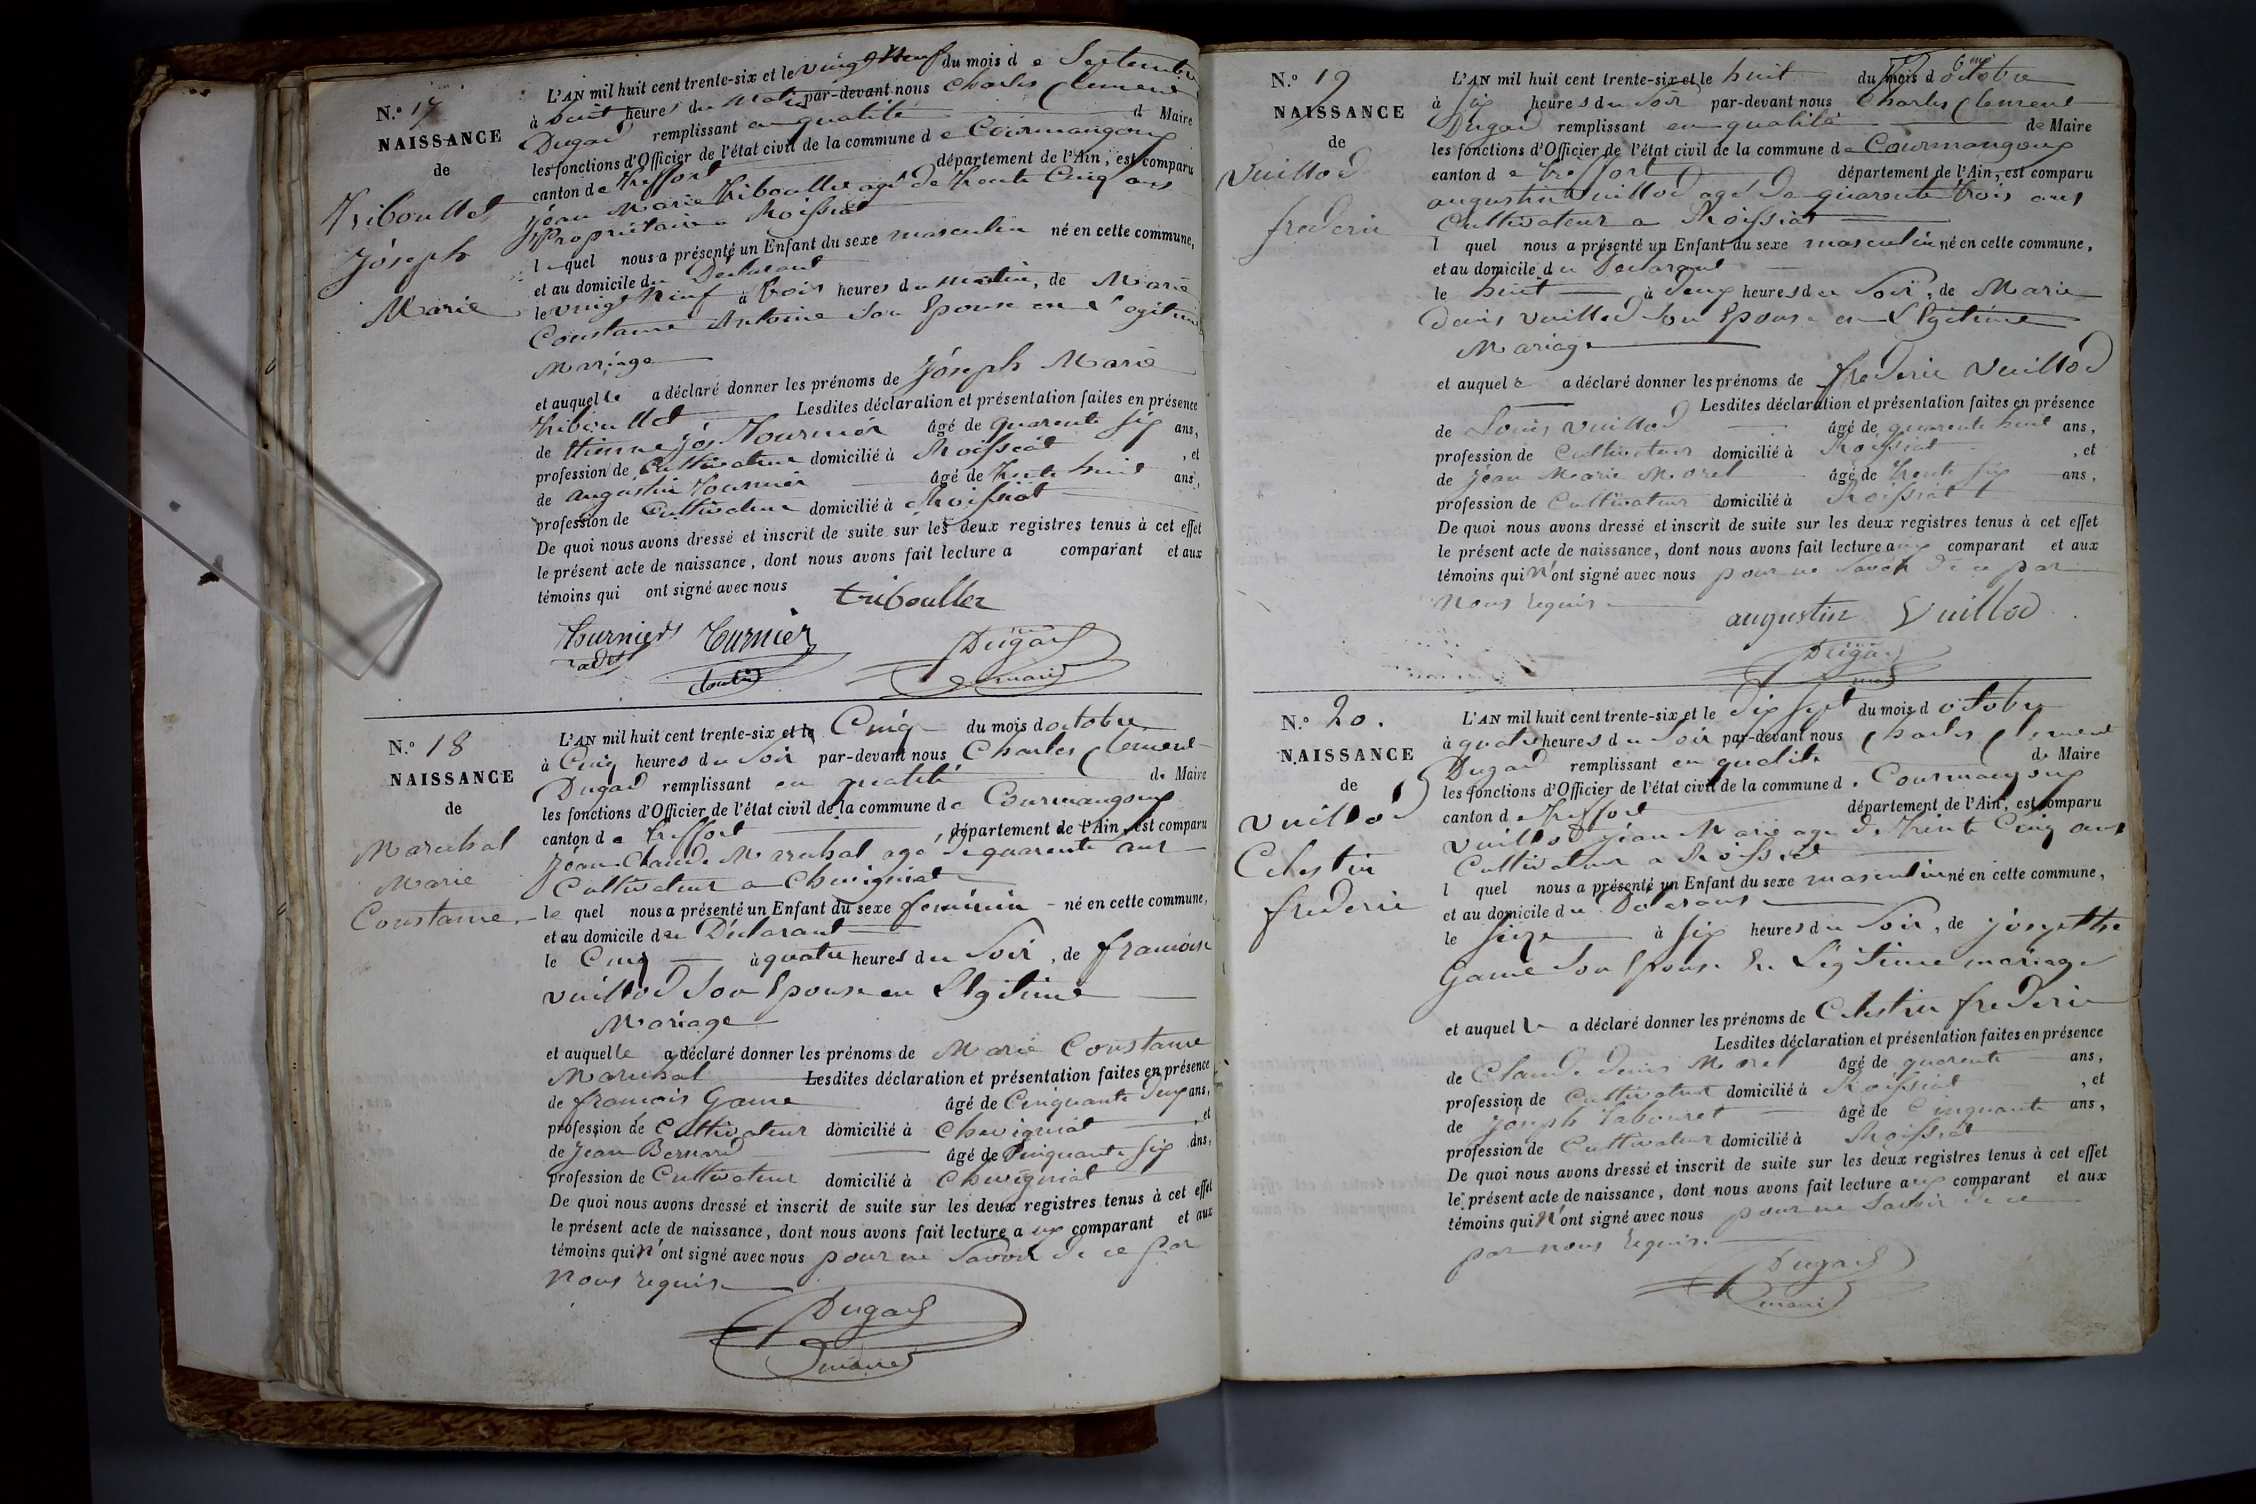 N.° 17
NAISSANCE
de
Triboullet
Joseph
Marie
L'AN mil huit cent trente-six et le vingt Neuf du mois d e Septembre
à huit heures du Matin par-devant nous Charles Clement
Dugad remplissant en qualité d Maire
les fonctions d'Officier de l'état civil de la commune d e Courmangoux
canton d e treffort département de l'Ain, est comparu
Jean Marie Triboullet agé de trente Cinq ans
Propriétaire a Roissiat
l e quel nous a présenté un Enfant du sexe masculin né en cette commune,
et au domicile du Déclarant
le vingt Neuf à trois heures du matin, de Marie
Constance Antoine Son Epouse en Légitime
Mariage
et auquel le a déclaré donner les prénoms de Joseph Marie
triboullet Lesdites déclaration et présentation faites en présence
de Etienne Jos Tournier âgé de quarente six ans,
profession de Cultivateur domicilié à Roissiat , et
de augustin Tournier âgé de trente huit ans,
profession de Cultivateur domicilié à Roissiat
De quoi nous avons dressé et inscrit de suite sur les deux registres tenus à cet effet
le présent acte de naissance, dont nous avons fait lecture a comparant et aux
témoins qui ont signé avec nous
triboullet
Tournier Turnier
Dugad
maire
N.° 18
NAISSANCE
de
Marechal
Marie
Constance
L'AN mil huit cent trente-six et le Cinq du mois d octobre
à Cinq heures du Soir par-devant nous Charles Clement
Dugad remplissant en qualité de Maire
les fonctions d'Officier de l'état civil de la commune d e Courmangoux
canton d e treffort , département de l'Ain, est comparu
Jean Claude Marechal agé de quarente ans
Cultivateur a Chevignat
le quel nous a présenté un Enfant du sexe feminin né en cette commune,
et au domicile du Déclarant
le Cinq à quatre heures du Soir, de francoise
vuillod Son Epouse en Légitime
Mariage
et auquel le a déclaré donner les prénoms de Marie Constance
Marechal Lesdites déclaration et présentation faites en présence
de francois Game âgé de Cinquante deux ans,
profession de Cultivateur domicilié à Chevignat , et
de Jean Bernard âgé de Cinquante six ans,
profession de Cultivateur domicilié à Chevignat
De quoi nous avons dressé et inscrit de suite sur les deux registres tenus à cet effet
le présent acte de naissance, dont nous avons fait lecture a ux comparant et aux
témoins qui n'ont signé avec nous pour ne Savoir de ce par
Nous requis
Dugad
maire
N.° 19
NAISSANCE
de
Vuillod
frederic
L'AN mil huit cent trente-six et le huit du mois d octobre
à Six heures du Soir par-devant nous Charles Clement
Dugad remplissant en qualité de Maire
les fonctions d'Officier de l'état civil de la commune d e Courmangoux
canton d e treffort département de l'Ain, est comparu
augustin Vuillod agé de quarente trois ans
Cultivateur a Roissiat
l quel nous a présenté un Enfant du sexe masculin né en cette commune,
et au domicile du Déclarant
le huit à deux heures du Soir, de Marie
Denis Vuillod Son Epouse en Légitime
Mariage
et auquel e a déclaré donner les prénoms de frederic Vuillod
Lesdites déclaration et présentation faites en présence
de Louis Vuillod âgé de quarente huit ans,
profession de Cultivateur domicilié à Roissiat , et
de Jean Marie Morel âgé de trente six ans,
profession de Cultivateur domicilié à Roissiat
De quoi nous avons dressé et inscrit de suite sur les deux registres tenus à cet effet
le présent acte de naissance, dont nous avons fait lecture a ux comparant et aux
témoins qui n'ont signé avec nous pour ne Savoir de ce par
Nous requis
augustin Vuillod
Dugad
maire
N.° 20.
NAISSANCE
de
Vuillod
Celestin
frederic
L'AN mil huit cent trente-six et le dix Sept du mois d octobre
à quatre heures du Soir par-devant nous Charles Clement
Dugad remplissant en qualité de Maire
les fonctions d'Officier de l'état civil de la commune d e Courmangoux
canton d e treffort département de l'Ain, est comparu
Vuillod Jean Marie agé de trente Cinq ans
Cultivateur a Roissiat
l quel nous a présenté un Enfant du sexe masculin né en cette commune,
et au domicile du Déclarant
le Seize à Six heures du Soir, de Josephte
Game Son Epouse En Légitime mariage
et auquel le a déclaré donner les prénoms de Celestin frederic
Lesdites déclaration et présentation faites en présence
de Claude Denis Morel âgé de quarente ans,
profession de Cultivateur domicilié à Roissiat , et
de Joseph Tabouret âgé de Cinquante ans,
profession de Cultivateur domicilié à Roissiat
De quoi nous avons dressé et inscrit de suite sur les deux registres tenus à cet effet
le présent acte de naissance, dont nous avons fait lecture a ux comparant et aux
témoins qui n'ont signé avec nous pour ne Savoir de ce
par nous requis
Dugad
maire